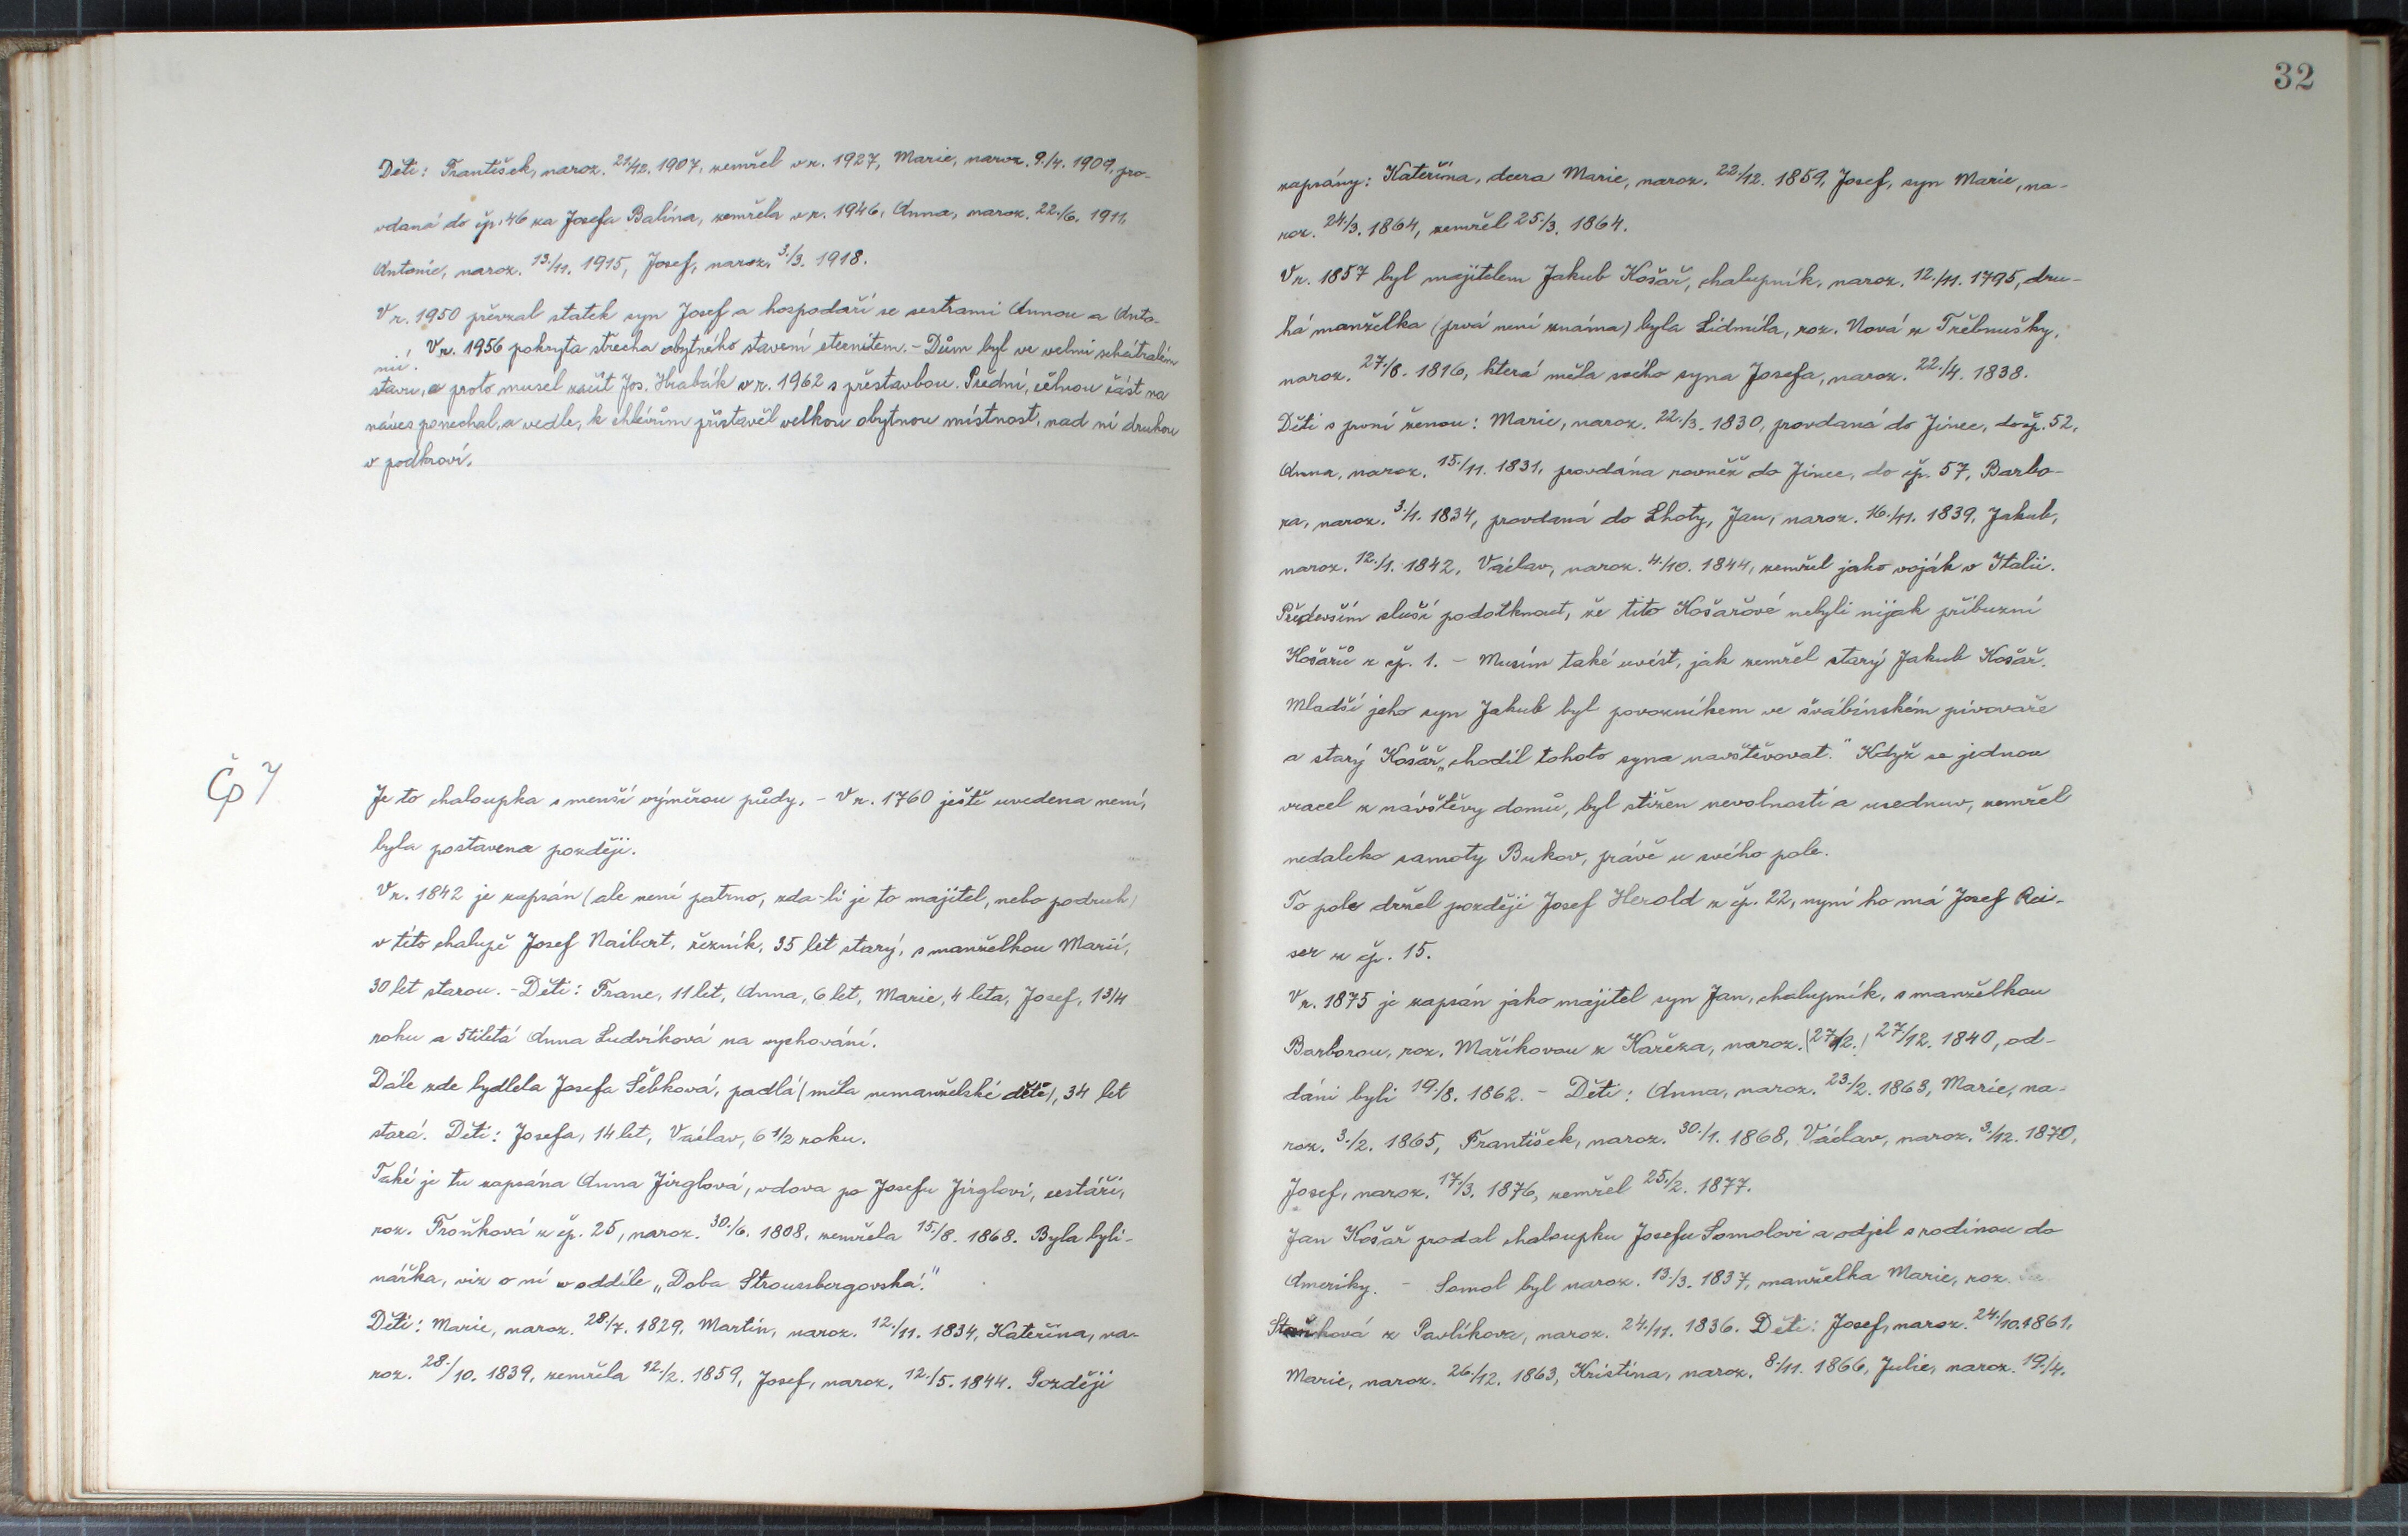 Děti: František, naroz. 21./12. 1907, zemřel v r. 1927, Marie, naroz. 9./4. 1909, pro-
vdaná do čp. 46 za Josefa Balína, zemřela v r. 1946, Anna, naroz. 22./6. 1911,
Antonie, naroz. 13./11. 1915, Josef, naroz. 3./3. 1918.
V r. 1950 převzal statek syn Josef a hospodaří se sestrami Annou a Anto-
nií. V r. 1956 pokryta střecha obytného stavení eternitem. - Dům byl ve velmi schátralém
stavu, a proto musel začít Jos. Hrabák v r. 1962 s přestavbou. Přední, čelnou část na
náves ponechal, a vedle, k chlévům přistavěl velkou obytnou místnost, nad ní druhou
v podkroví.
Čp 7
Je to chaloupka s menší výměrou půdy. - V r. 1760 ještě uvedena není,
byla postavena později.
V r. 1842 je zapsán (ale není patrno, zda-li je to majitel, nebo podruh)
v této chalupě Josef Naibert, řezník, 35 let starý, s manželkou Marií,
30 let starou. - Děti: Franc, 11 let, Anna, 6 let, Marie, 4 leta, Josef, 1 3/4
roku a 5tiletá Anna Ludvíková na vychování.
Dále zde bydlela Josefa Šébková, padlá (měla nemanželské děti), 34 let
stará. Děti: Josefa, 14 let, Václav, 6 1/2 roku.
Také je tu zapsána Anna Jirglová, vdova po Josefu Jirglovi, cestáři,
roz. Troňková z čp. 25, naroz. 30./6. 1808, zemřela 15./8. 1868. Byla byli-
nářka, viz o ní v oddíle „Doba Stroussbergovská."
Děti: Marie, naroz. 28./7. 1829, Martin, naroz. 12./11. 1834, Kateřina, na-
roz. 28./10. 1839, zemřela 12./2. 1859, Josef, naroz. 12./5. 1844. Později
32
zapsány: Kateřina, dcera Marie, naroz. 22./12. 1859, Josef, syn Marie, na-
roz. 24./3. 1864, zemřel 25./3. 1864.
V r. 1857 byl majitelem Jakub Košař, chalupník, naroz. 12./11. 1795, dru-
há manželka (prvá není známa) byla Lidmila, roz. Nová z Třebnušky,
naroz. 27./8. 1816, která měla svého syna Josefa, naroz. 22./4. 1838.
Děti s první ženou: Marie, naroz. 22./3. 1830, provdaná do Jinec, do čp. 52,
Anna, naroz. 15./11. 1831, provdána rovněž do Jinec, do čp. 57, Barbo-
ra, naroz. 3./1. 1834, provdaná do Lhoty, Jan, naroz. 16./11. 1839, Jakub,
naroz. 12./1. 1842, Václav, naroz. 4./10. 1844, zemřel jako voják v Italii.
Především sluší podotknout, že tito Košařové nebyli nijak příbuzní
Košařů z čp. 1. - Musím také uvést, jak zemřel starý Jakub Košař.
Mladší jeho syn Jakub byl povozníkem ve švábínském pivovaře
a starý Košař „chodil tohoto syna navštěvovat." Když se jednou
vracel z návštěvy domů, byl stižen nevolností a usednuv, zemřel
nedaleko samoty Bukov, právě u svého pole.
To pole držel později Josef Herold z čp. 22, nyní ho má Josef Rei-
ser z čp. 15.
V r. 1875 je zapsán jako majitel syn Jan, chalupník, s manželkou
Barborou, roz. Maříkovou z Kařeza, naroz. (27./2.) 27./12. 1840, od-
dáni byli 19./8. 1862. - Děti: Anna, naroz. 23./2. 1863, Marie, na-
roz. 3./2. 1865, František, naroz. 30./1. 1868, Václav, naroz. 3./12. 1870,
Josef, naroz. 17./3. 1876, zemřel 25./2. 1877.
Jan Košař prodal chaloupku Josefu Somolovi a odjel s rodinou do
Ameriky. - Somol byl naroz. 13./3. 1837, manželka Marie, roz.
Staňková z Pavlíkova, naroz. 24./11. 1836. Děti: Josef, naroz. 24./10. 1861,
Marie, naroz. 26./12. 1863, Kristina, naroz. 8./11. 1866, Julie, naroz. 19./4.